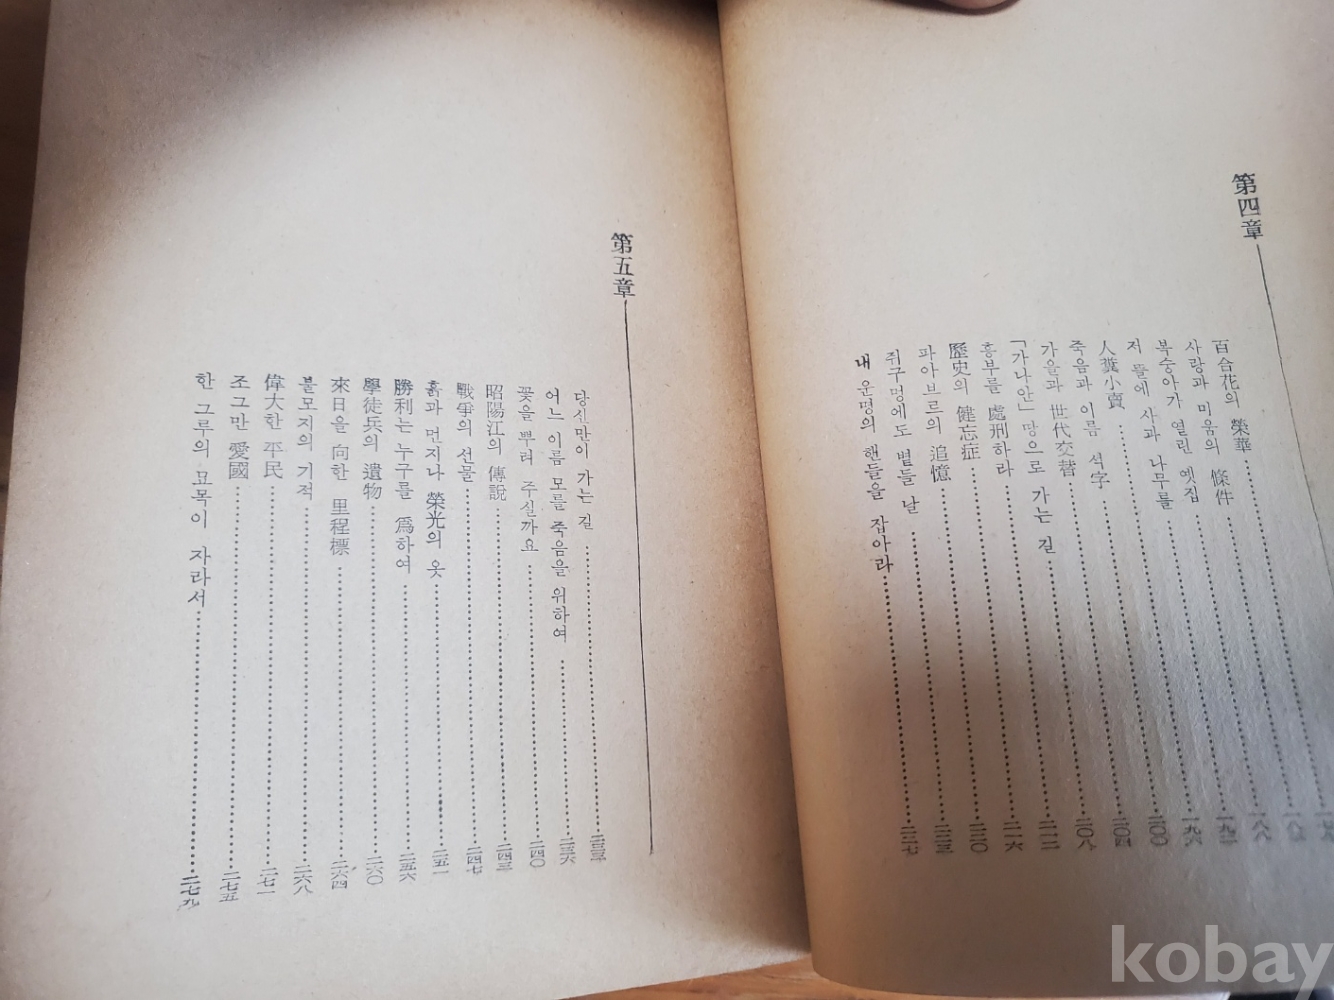 第四章
百合花의 榮華
사랑과 미움의 條件
복숭아가 열린 옛집 一八八
저 들에 사과 나무를 一九二
人糞小賣 一九六
죽음과 이름 석字 二〇〇
가을과 世代交替 二〇四
「가나안」땅으로 가는 길 二〇八
흥부를 處刑하라 二一二
歷史의 健忘症 二一六
파아브르의 追憶 二二〇
쥐구멍에도 볕들 날 二二三
내 운명의 핸들을 잡아라 二二七
第五章
당신만이 가는 길 二三三
어느 이름 모를 죽음을 위하여 二三六
꽃을 뿌려 주실까요 二四〇
昭陽江의 傳說 二四三
戰爭의 선물 二四七
흙과 먼지나 榮光의 옷 二五一
勝利는 누구를 爲하여 二五六
學徒兵의 遺物 二六〇
來日을 向한 里程標 二六四
불모지의 기적 二六八
偉大한 平民 二七一
조그만 愛國 二七五
한 그루의 묘목이 자라서 二七九
kobay